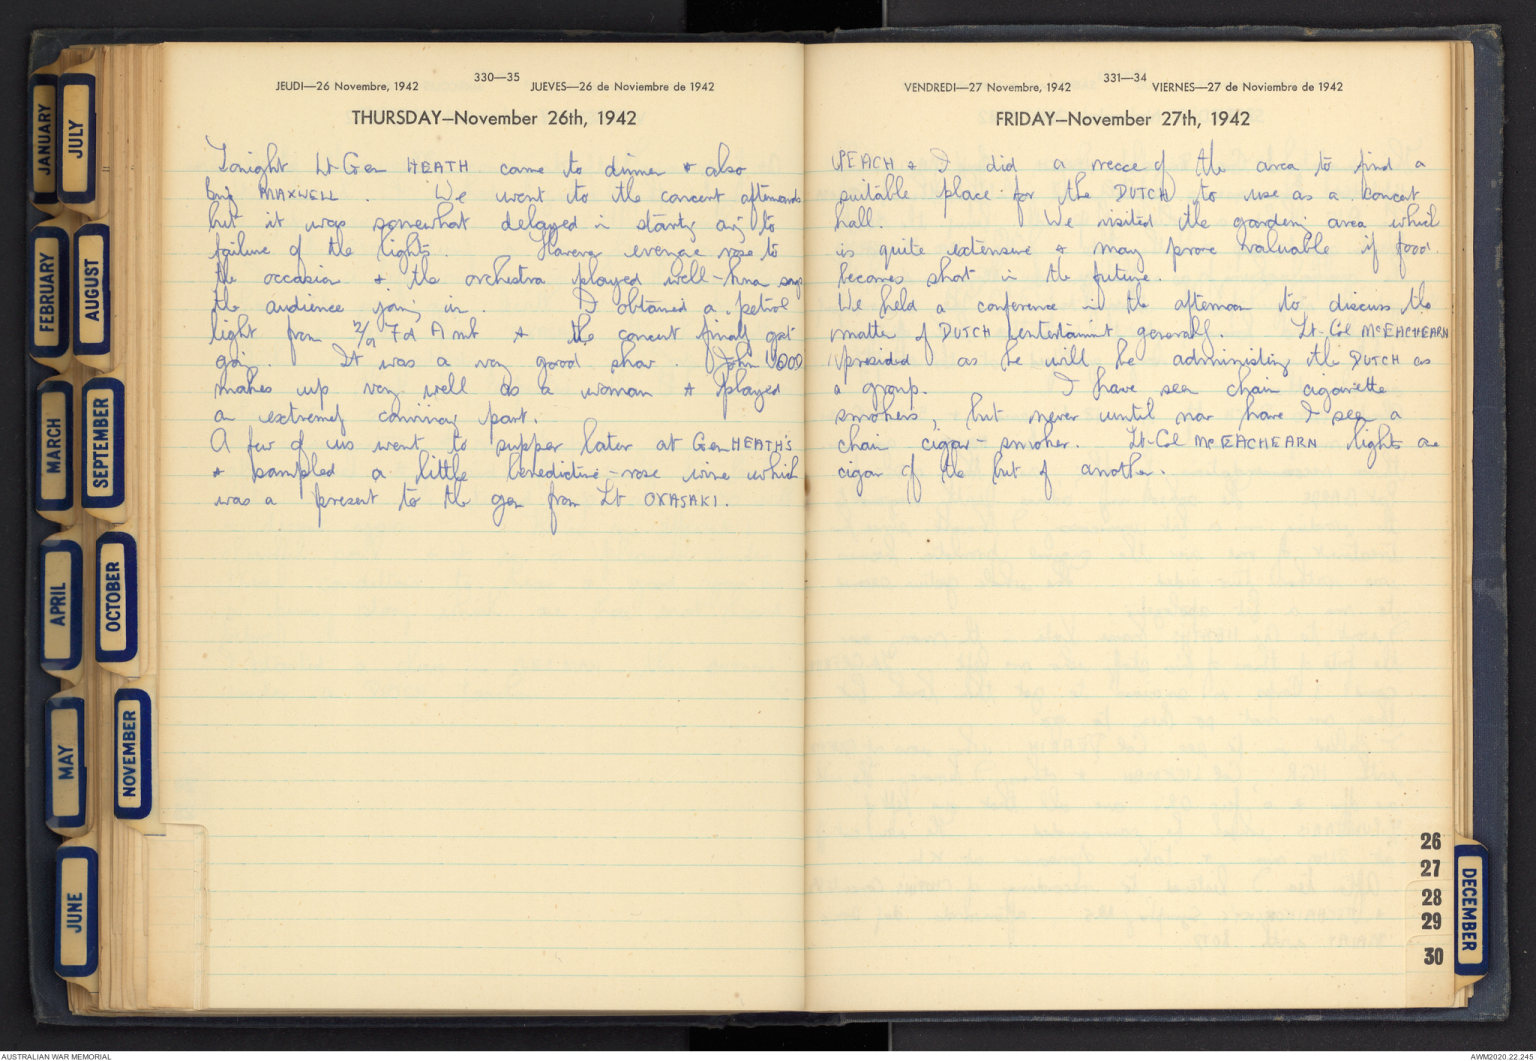 JEUDI—26 Novembre, 1942
330—35
JUEVES—26 de Noviembre de 1942
THURSDAY—November 26th, 1942
Tonight Lt-Gen HEATH came to dinner & also
Brig MAXWELL. We went to the concert afterwards
but it was somewhat delayed in starting owing to
failure of the lights. However everyone rose to
the occasion & the orchestra played well-known songs
the audience joining in. I obtained a petrol
light from 2/9 Fd Amb & the concert finally got
going. It was a very good show. John WOOD
makes up very well as a woman & played
an extremely convincing part.
A few of us went to supper later at Gen HEATH'S
& sampled a little benedictine-rose wine which
was a present to the gen from Lt OKASAKI.
VENDREDI—27 Novembre, 1942
331—34
VIERNES—27 de Noviembre de 1942
FRIDAY—November 27th, 1942
PEACH & I did a recce of the area to find a
suitable place for the DUTCH to use as a concert
hall. We visited the gardening area which
is quite extensive & may prove valuable if food
becomes short in the future.
We held a conference in the afternoon to discuss the
matter of DUTCH entertainment generally. Lt-Col McEACHEARN
presided as he will be administering the DUTCH as
a group. I have seen chain cigarette
smokers, but never until now have I seen a
chain cigar-smoker. Lt-Col McEACHEARN lights one
cigar off the but of another.
JANUARY
JULY
FEBRUARY
AUGUST
MARCH
SEPTEMBER
APRIL
OCTOBER
MAY
NOVEMBER
JUNE
26
27
28
29
30
DECEMBER
AUSTRALIAN WAR MEMORIAL
AWM2020.22.245